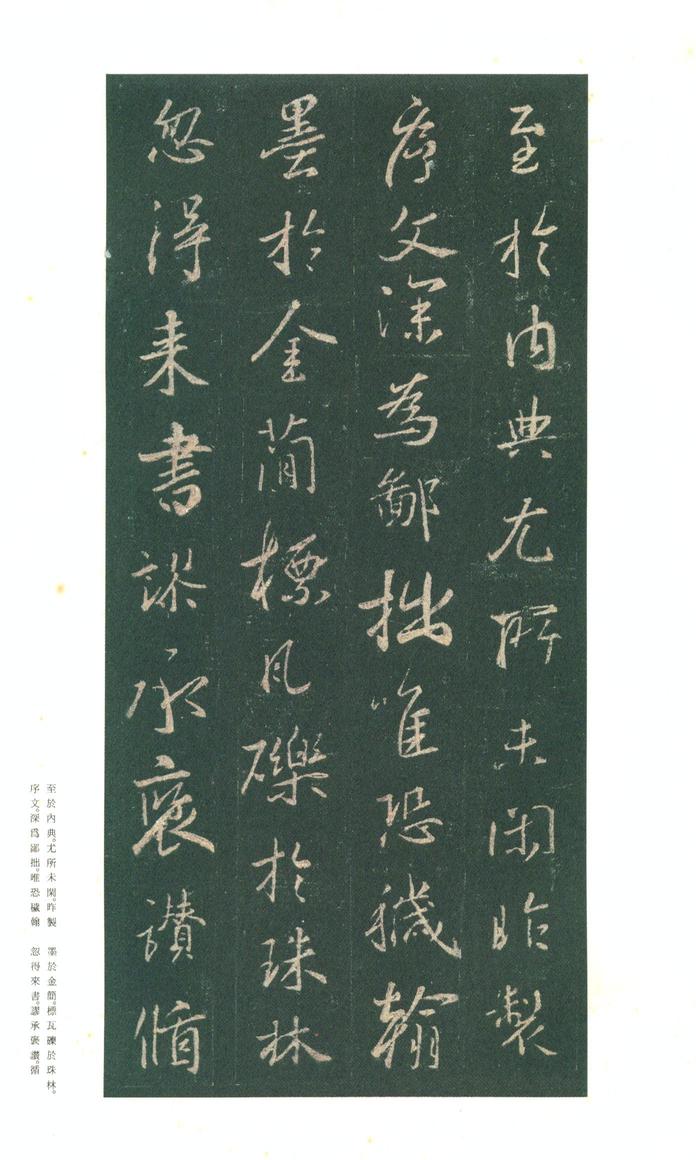 至於内典尤所未閑昨製
序文深為鄙拙唯恐穢翰
墨於金蕳標凡礫於珠林
忽得来書謬承褒讃循
至於內典。尤所未閑。昨製
序文。深爲鄙拙。唯恐穢翰
墨於金簡。標瓦礫於珠林。
忽得來書。謬承褒讚。循